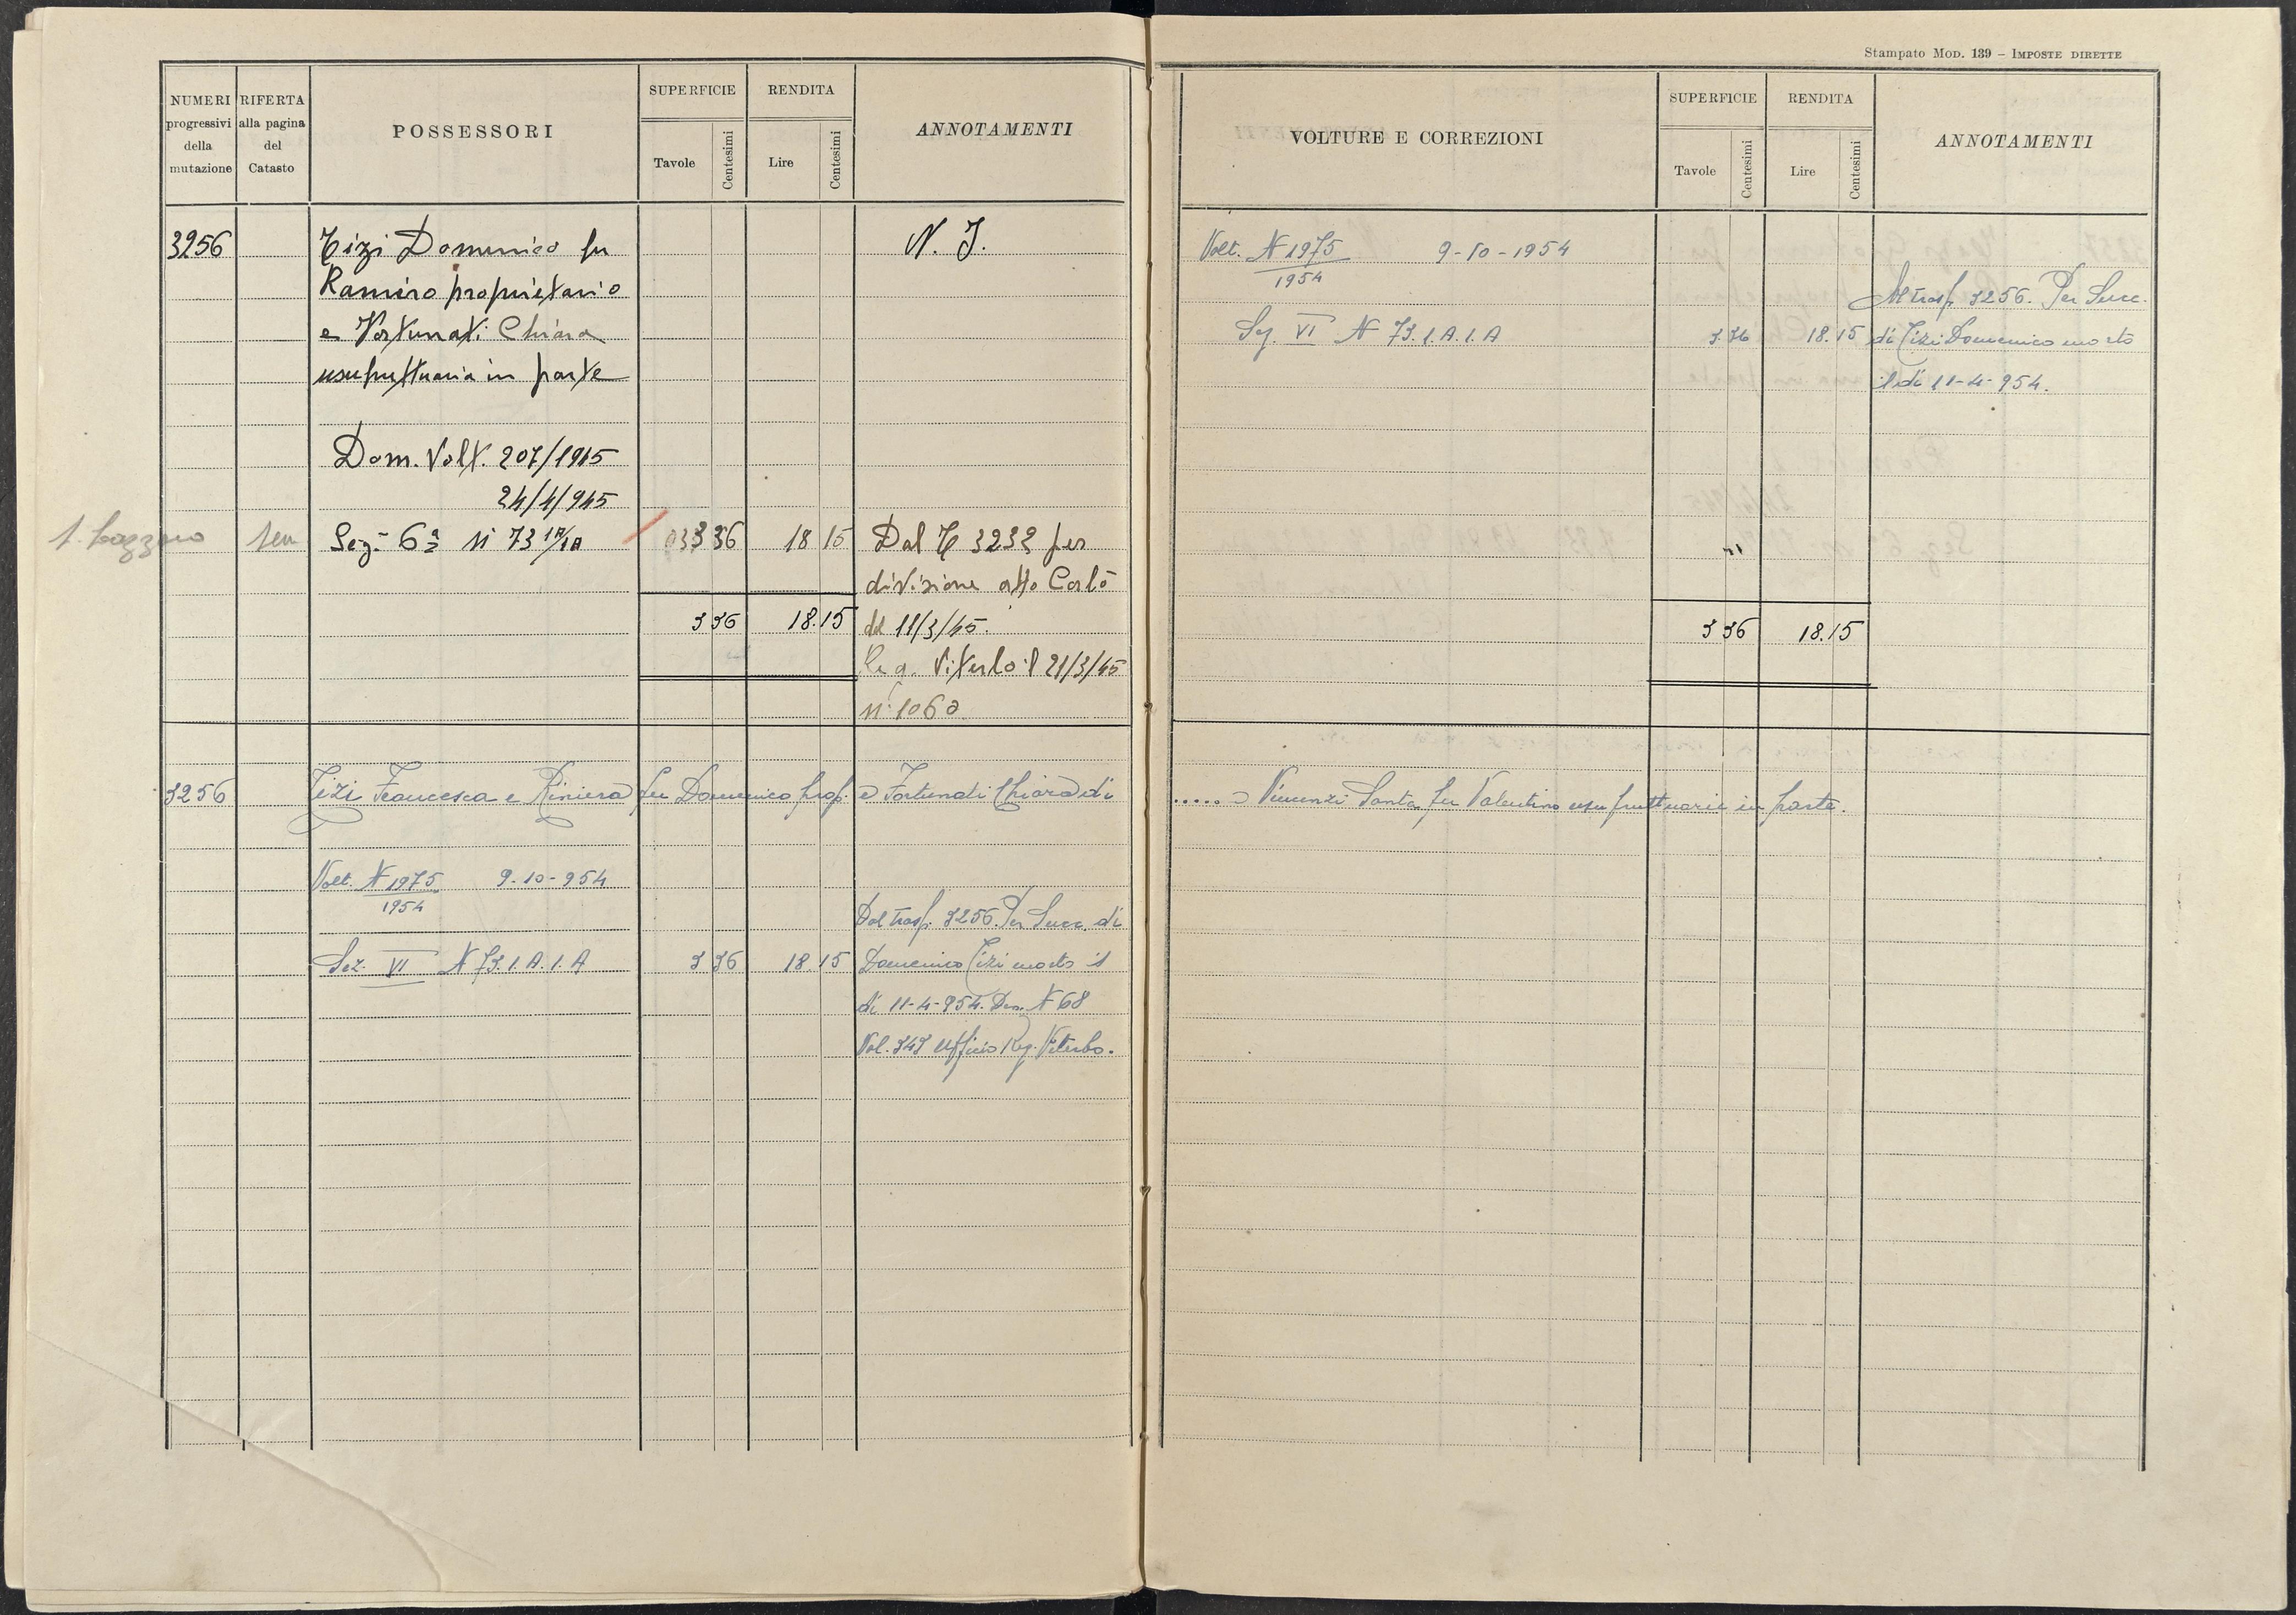 Stampato Mod. 139 – Imposte dirette
NUMERI progressivi della mutazione
RIFERTA alla pagina del Catasto
POSSESSORI
SUPERFICIE
Tavole
Centesimi
RENDITA
Lire
Centesimi
ANNOTAMENTI
3256
Tizi Domenico fu
N. I.
Ramiro proprietario
e Fortunati Chiara
usufruttuaria in parte
Dom. Volt. 207/1945
24/4/945
Sez. 6ª N 73 1A/1A
3 36
18 15
Dal T 3232 per
divisione atto
del 11/3/45.
3 36
18.15
Reg. Viterbo il 21/3/45
n. 1060
3256
Tizi Francesca e Riniera fu Domenico prop. e Fortunati Chiara di
Volt. N 1975
1954
9-10-954
Dal trasf. 3256. Per Succ. di
Sez. VI N 73.1.A.1.A
3 36
18 15
Domenico Tizi morto il
di 11-4-954. Den. N 68
Vol. 343 Ufficio Reg. Viterbo.
VOLTURE E CORREZIONI
SUPERFICIE
Tavole
Centesimi
RENDITA
Lire
Centesimi
ANNOTAMENTI
Volt. N 1975
1954
9-10-1954
Al trasf. 3256. Per Succ.
Sez. VI N 73.1.A.1.A
3 36
18.15
di Tizi Domenico morto
il di 11-4-954.
3 36
18.15
..... e Vincenzi Santa fu Valentino usufruttuarie in parte.